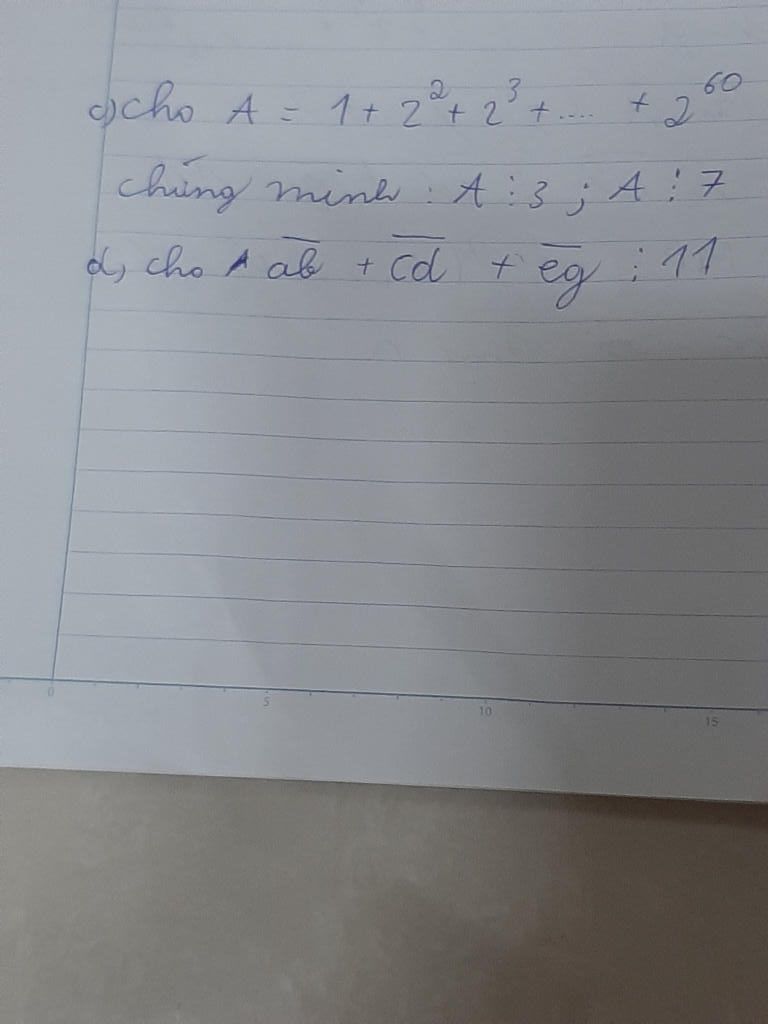 c) cho A = 1 + 2² + 2³ + .... + 2⁶⁰
chứng minh : A ⋮ 3 ; A ⋮ 7
d, cho a̅b̅ + c̅d̅ + e̅g̅ ⋮ 11
0 5 10 15